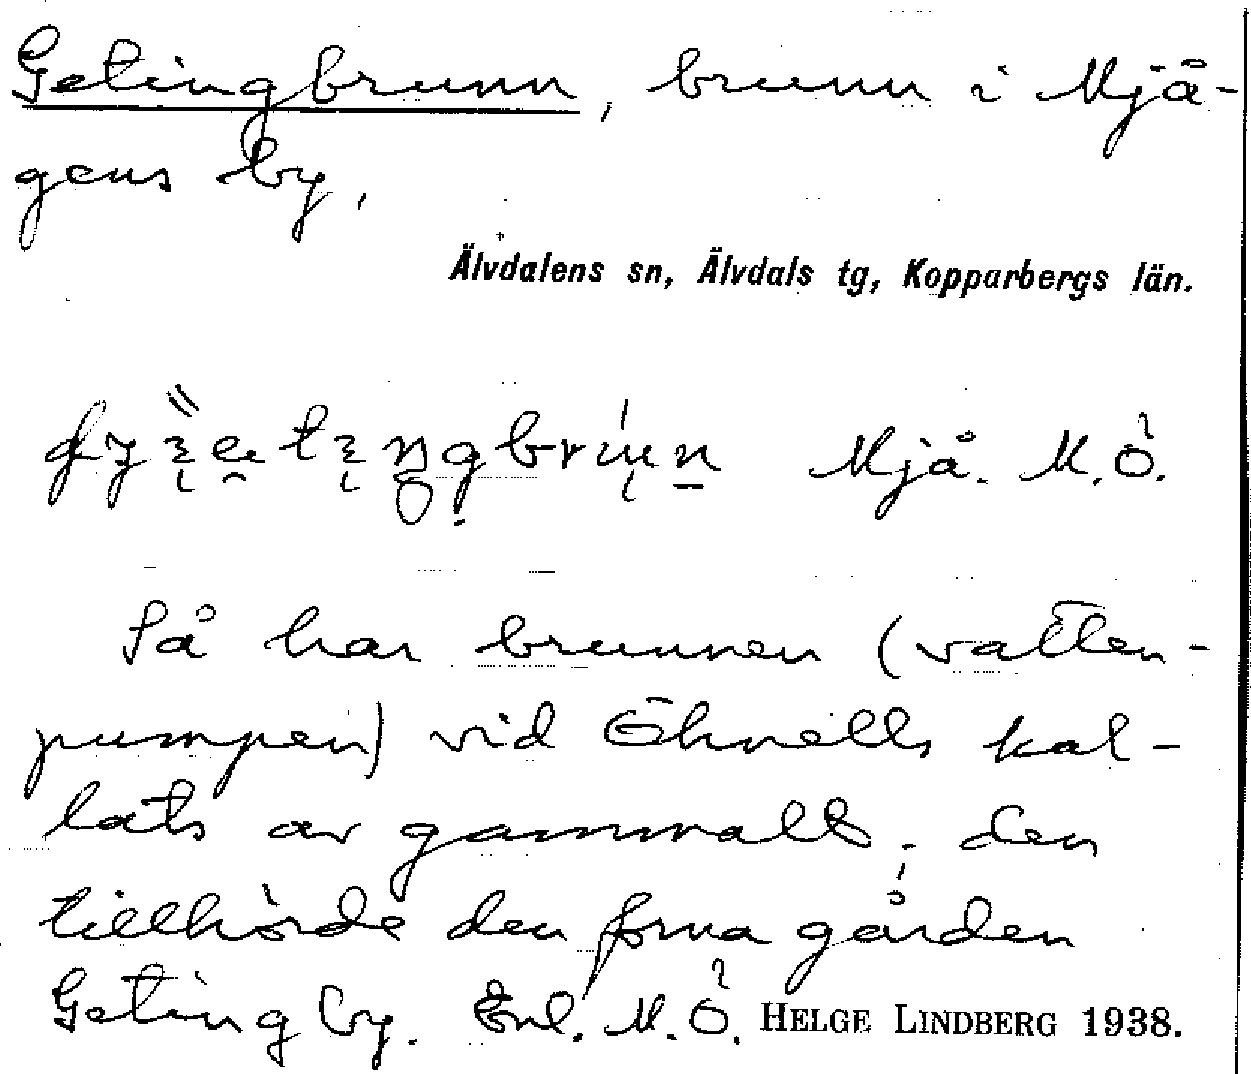 Getingbrunn, brunn i Mjå-
gens by,
Älvdalens sn, Älvdals tg, Kopparbergs län.
Mjå. M.Ö.
Så har brunnen (vatten-
pumpen) vid Öhnells kal-
lats av gammalt; den
tillhörde den forna gården
Getingby. Enl. M.Ö. HELGE LINDBERG 1938.